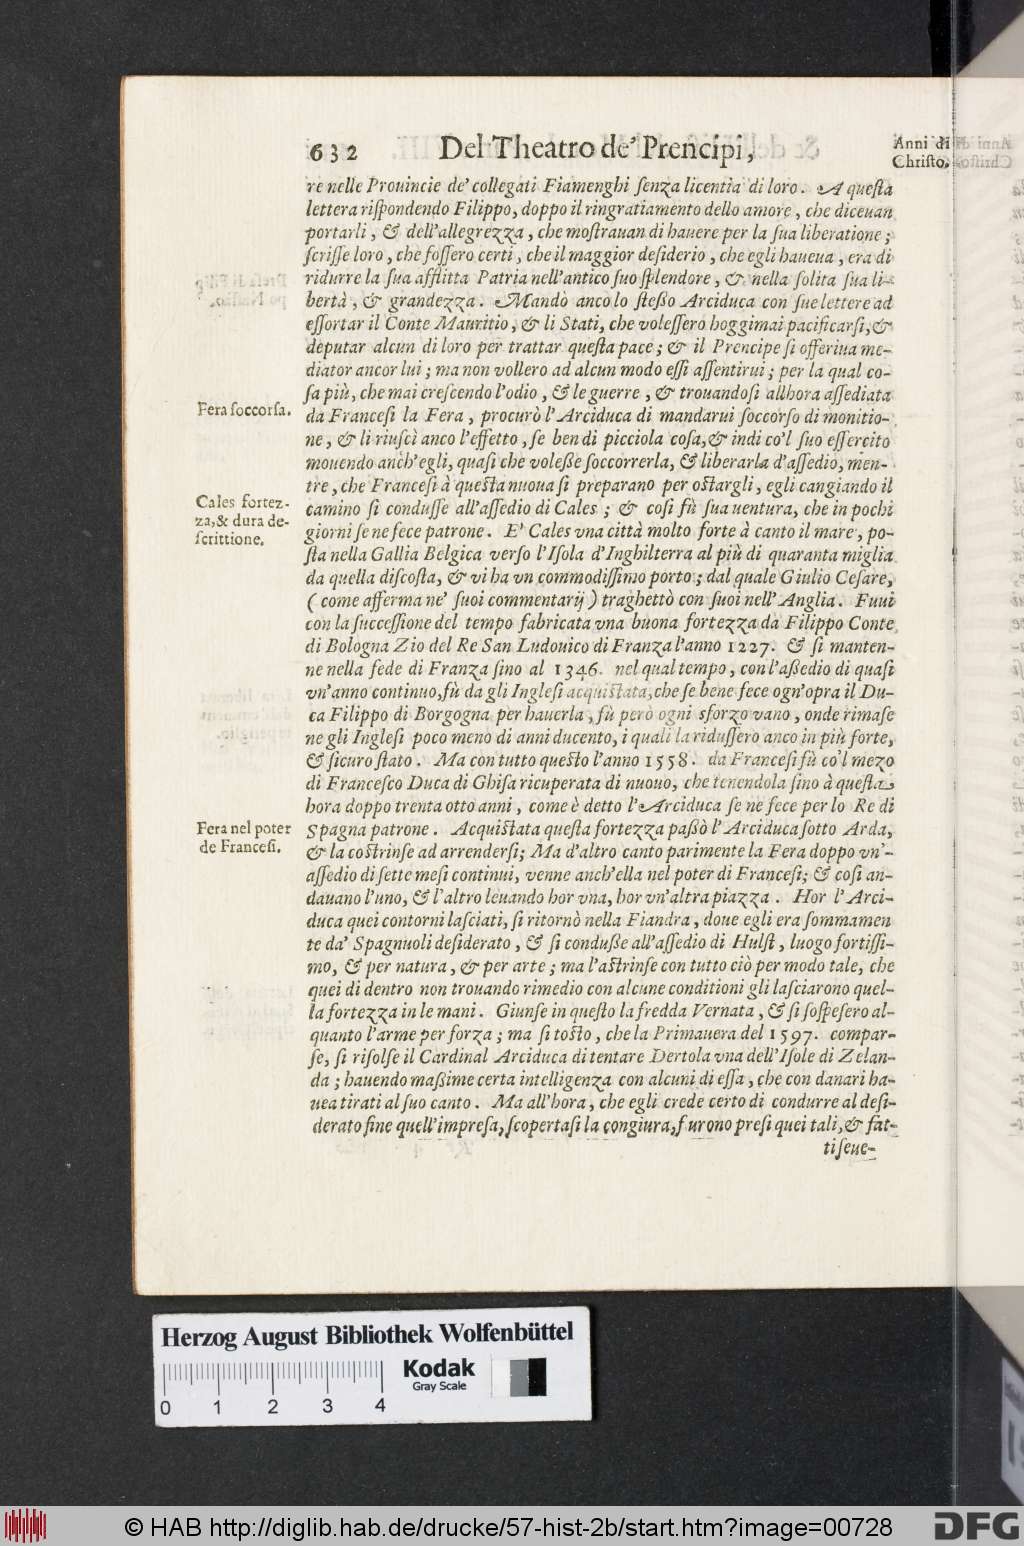 632 Del Theatro de' Prencipi,
Anni di
Christo.
re nelle Prouincie de' collegati Fiamenghi ſenza licentia di loro. A queſta
lettera riſpondendo Filippo, doppo il ringratiamento dello amore, che diceuan
portarli, & dell'allegrezza, che moſtrauan di hauere per la ſua liberatione;
ſcriſſe loro, che foſſero certi, che il maggior deſiderio, che egli haueua, era di
ridurre la ſua afflitta Patria nell'antico ſuo ſplendore, & nella ſolita ſua li-
bertà, & grandezza. Mandò anco lo ſteßo Arciduca con ſue lettere ad
eſſortar il Conte Mauritio, & li Stati, che voleſſero hoggimai pacificarſi, &
deputar alcun di loro per trattar queſta pace; & il Prencipe ſi offeriua me-
diator ancor lui; ma non vollero ad alcun modo eſſi aſſentirui; per la qual co-
ſa più, che mai creſcendo l'odio, & le guerre, & trouandoſi allhora aſſediata
Fera ſoccorſa.
da Franceſi la Fera, procurò l'Arciduca di mandarui ſoccorſo di monitio-
ne, & li riuſcì anco l'effetto, ſe ben di picciola coſa, & indi co'l ſuo eſſercito
mouendo anch'egli, quaſi che voleße ſoccorrerla, & liberarla d'aſſedio, men-
tre, che Franceſi à queſta nuoua ſi preparano per oſtargli, egli cangiando il
Cales fortez-
za, & dura de-
ſcrittione.
camino ſi conduſſe all'aſſedio di Cales; & coſi fù ſua uentura, che in pochi
giorni ſe ne fece patrone. E' Cales vna città molto forte à canto il mare, po-
ſta nella Gallia Belgica verſo l'Iſola d'Inghilterra al più di quaranta miglia
da quella diſcoſta, & vi ha vn commodiſſimo porto; dal quale Giulio Ceſare,
(come afferma ne' ſuoi commentarij) traghettò con ſuoi nell'Anglia. Fuui
con la ſucceſſione del tempo fabricata vna buona fortezza da Filippo Conte
di Bologna Zio del Re San Ludouico di Franza l'anno 1227. & ſi manten-
ne nella fede di Franza ſino al 1346. nel qual tempo, con l'aßedio di quaſi
vn'anno continuo, fù da gli Ingleſi acquiſtata, che ſe bene fece ogn'opra il Du-
ca Filippo di Borgogna per hauerla, fù però ogni sforzo vano, onde rimaſe
ne gli Ingleſi poco meno di anni ducento, i quali la riduſſero anco in più forte,
& ſicuro ſtato. Ma con tutto queſto l'anno 1558. da Franceſi fù co'l mezo
di Franceſco Duca di Ghiſa ricuperata di nuouo, che tenendola ſino à queſta
hora doppo trenta otto anni, come è detto l'Arciduca ſe ne fece per lo Re di
Fera nel poter
de Franceſi.
Spagna patrone. Acquiſtata queſta fortezza paßò l'Arciduca ſotto Arda,
& la coſtrinſe ad arrenderſi; Ma d'altro canto parimente la Fera doppo vn'-
aſſedio di ſette meſi continui, venne anch'ella nel poter di Franceſi; & coſi an-
dauano l'uno, & l'altro leuando hor vna, hor vn'altra piazza. Hor l'Arci-
duca quei contorni laſciati, ſi ritornò nella Fiandra, doue egli era ſommamen
te da' Spagnuoli deſiderato, & ſi conduße all'aſſedio di Hulſt, luogo fortiſſi-
mo, & per natura, & per arte; ma l'aſtrinſe con tutto ciò per modo tale, che
quei di dentro non trouando rimedio con alcune conditioni gli laſciarono quel-
la fortezza in le mani. Giunſe in queſto la fredda Vernata, & ſi ſoſpeſero al-
quanto l'arme per forza; ma ſi toſto, che la Primauera del 1597. compar-
ſe, ſi riſolſe il Cardinal Arciduca di tentare Dertola vna dell'Iſole di Zelan-
da; hauendo maßime certa intelligenza con alcuni di eſſa, che con danari ha-
uea tirati al ſuo canto. Ma all'hora, che egli crede certo di condurre al deſi-
derato fine quell'impreſa, ſcopertaſi la congiura, furono preſi quei tali, & fat-
ti ſeue-
Herzog August Bibliothek Wolfenbüttel
Kodak
Gray Scale
0 1 2 3 4
© HAB http://diglib.hab.de/drucke/57-hist-2b/start.htm?image=00728
DFG